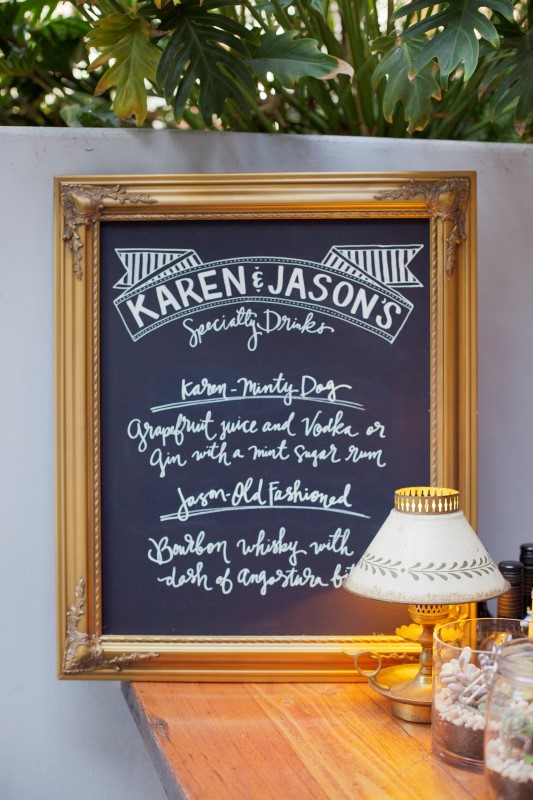 KAREN & JASON'S
Specialty Drinks
Karen-Minty Dog
Grapefruit juice and Vodka or
Gin with a mint sugar rum
Jason-Old Fashioned
Bourbon whisky with
dash of Angostura